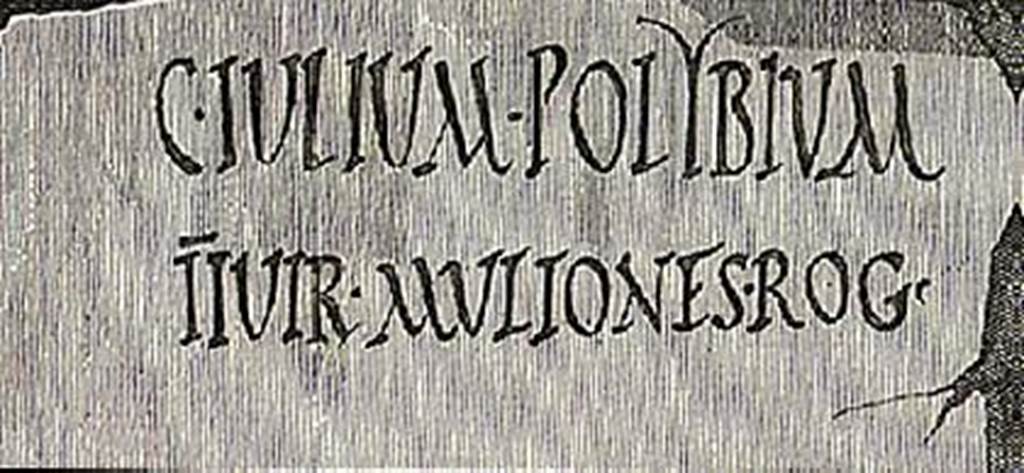 C·IULIUM·POLYBIUM
IIVIR·MULIONES·ROG·